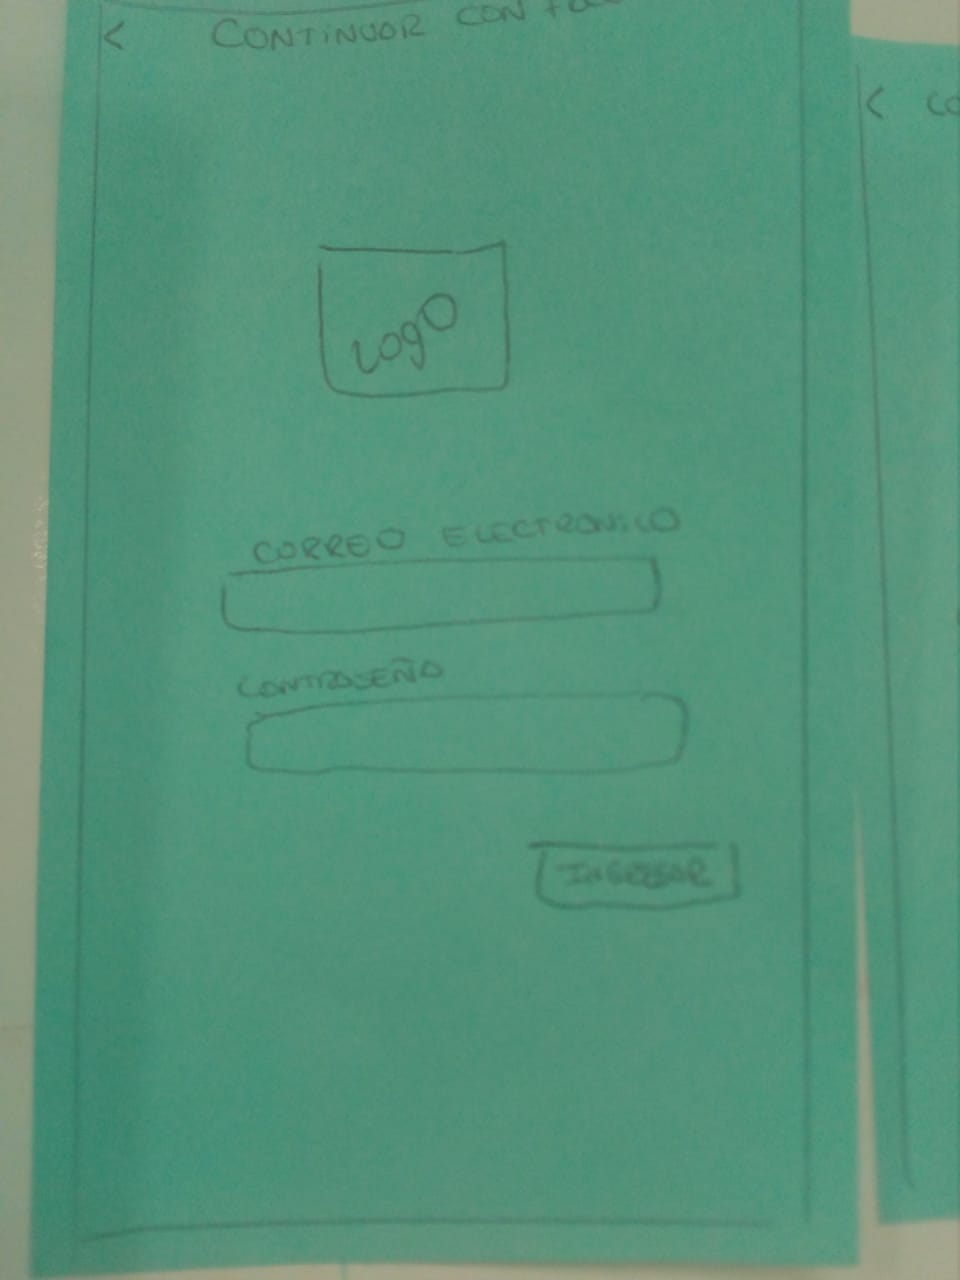 < CONTINUAR CON
LOGO
CORREO ELECTRONICO
CONTRASEÑA
INGRESAR
<